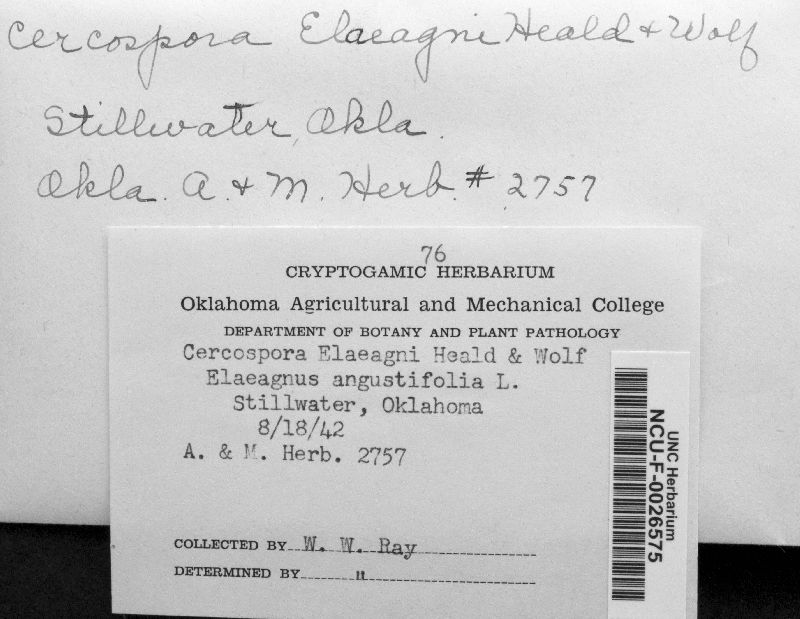 Cercospora Elaeagni Heald & Wolf
Stillwater, Okla.
Okla. A. & M. Herb. # 2757
76
CRYPTOGAMIC HERBARIUM
Oklahoma Agricultural and Mechanical College
DEPARTMENT OF BOTANY AND PLANT PATHOLOGY
Cercospora Elaeagni Heald & Wolf
Elaeagnus angustifolia L.
Stillwater, Oklahoma
8/18/42
A. & M. Herb. 2757
COLLECTED BY W. W. Ray
DETERMINED BY "
UNC Herbarium
NCU-F-0026575